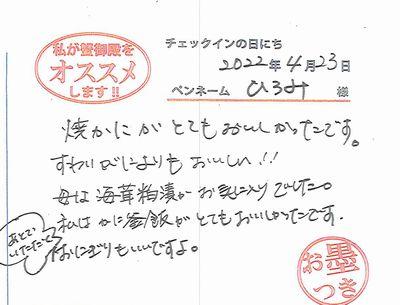 私が蟹御殿を
オススメ
します!!
チェックインの日にち
2022年4月23日
ペンネーム ひろみ 様
焼かにがとてもおいしかったです。
すわいがによりもおいしい!!
母は海茸粕漬がお気に入りでした。
私はかに釜飯がとてもおいしかったです。
あとで
いただいた
おにぎりもいいですよ。
お墨
つき